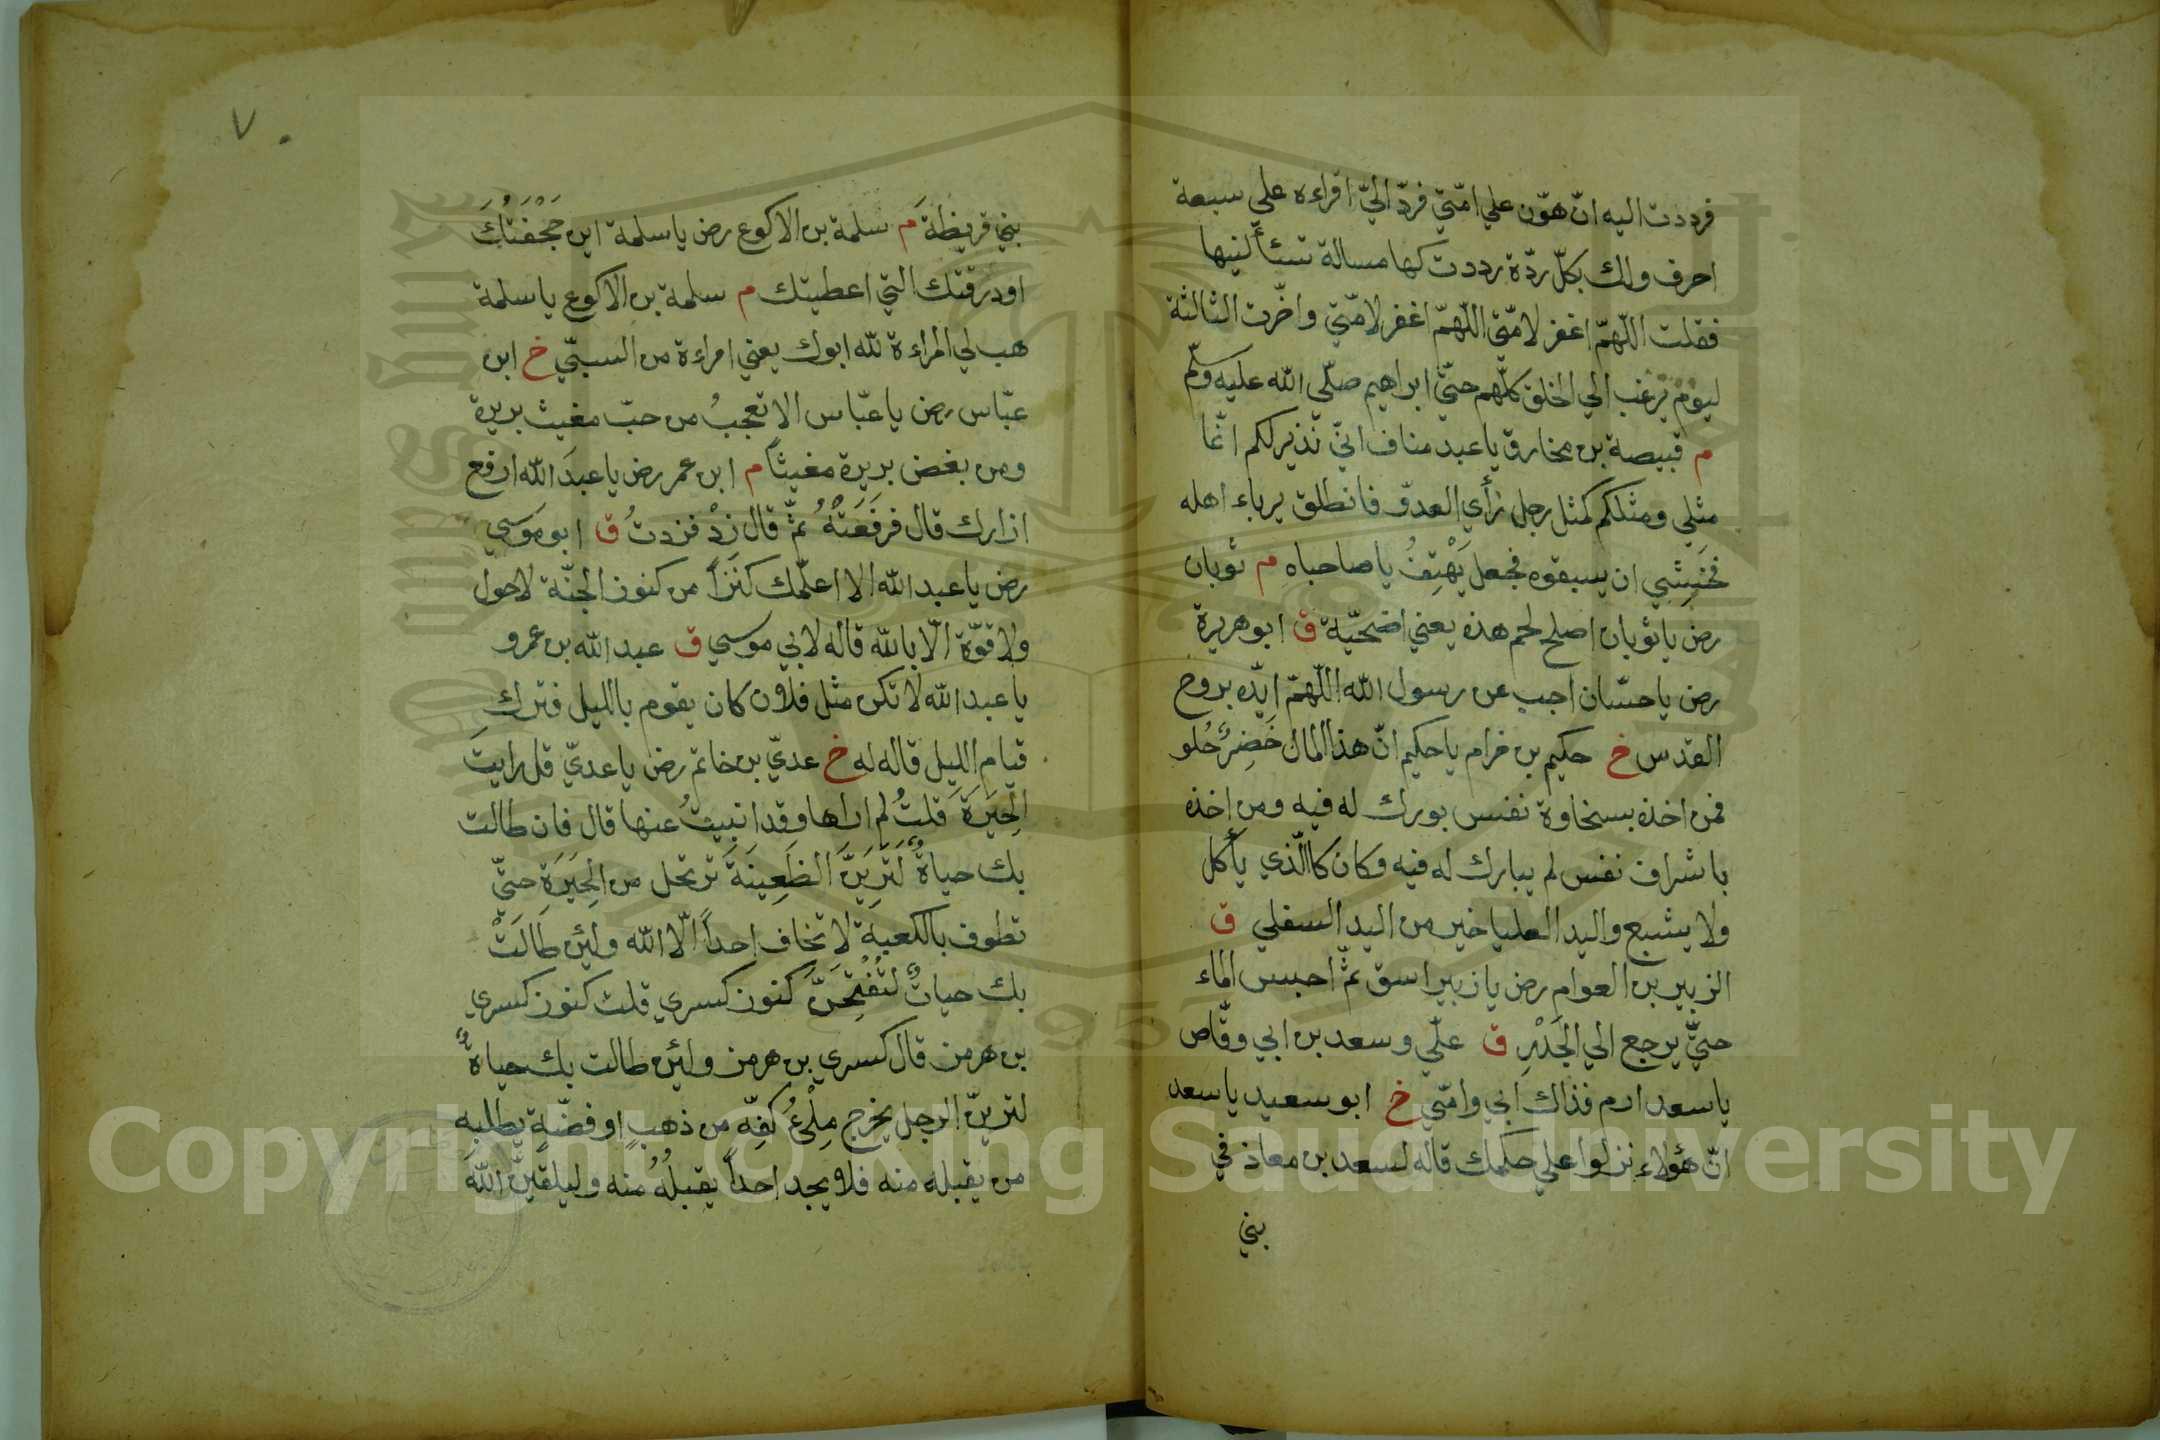 فرددت اليه انّ هوّن علي امّتي فردّ اليّ اقراءه علي سبعة
احرف ولك بكلّ ردّة رددت كها مسالة تسئألنيها
فقلت اللّهمّ اغفر لامّتي اللّهمّ اغفر لامّتي واخّرت الثالثة
ليوم يرغب الي الخلق كلّهم حتّي ابراهيم صلّى الله عليه وسلّم
م قبيصة بن مخارق يا عبد مناف انّي نذير لكم انّما
مثلي ومثلكم كمثل رجل رأي العدوّ فانطلق يرباء اهله
فخَشِي ان يسبقوه فجعل يَهْتِفُ يا صاحباه م ثوبان
رض يا ثوبان اصلح لحم هذه يعني اضحيّة ق ابو هريرة
رض يا حسّان اجب عن رسول الله اللّهمّ ايّده بروح
القدس خ حكيم بن خزام يا حكيم انّ هذا المال خَضِرٌ حُلو
فمن اخذه بسخاوة نفس بورك له فيه ومن اخذه
باشراف نفس لم يبارك له فيه وكان كاالّذي يأكل
ولا يشبع واليد العليا خير من اليد السفلي ق
الزبير بن العوام رض يا زبير اسق ثمّ احبس الماء
حتّي يرجع الي الجَدْرِ ق علّي وسعد بن ابي وقّاص
يا سعد ارم فذاك ابي وامّي خ ابو سعيد يا سعد
انّ هؤلاء نزلوا علي حكمك قاله لسعد بن معاذ في
بني
٧٠
بني قريظة م سلمة بن الاكوع رض يا سلمة اين حَجْفَتُكَ
او درقتك التي اعطيتك م سلمة بن الاكوع يا سلمة
هب لي المراءة لله ابوك يعني امراءة من السبّي خ ابن
عبّاس رض يا عبّاس الا تعجبُ من حبّ مغيث بريرة
ومن بغض بريرة مغيثاً م ابن عمر رض يا عبدَ الله ارفع
ازارك قال فرفَعَتْهُ ثمّ قال زِدْ فزدتُ ق ابو موَسي
رض يا عبد الله الا اعلّمك كَنزاً من كنوز الجنّة لا حول
ولا قوّة الّا بالله قاله لابي موسي ق عبد الله بن عمرو
يا عبد الله لا تكن مثل فلان كان يقوم بالليل فترك
قيام الليل قاله له خ عديّ بن خاتم رض يا عديّ قل رايتَ
الِحيَرةَ قلتُ لم ارها وقد انبيتُ عنها قال فان طالت
بك حياةٌ لَتَرَيَنَّ الظَعِينَةَ ترتحل من الِحيَرَةِ حتّي
تطوف بالكعبةِ لا تخاف احداً الّا الله ولئن طَالَتْ
بك حياتٌ لتُفْتَحَنَّ كنوز كسري قلت كنوز كسري
بن هرمز قال كسري بن هرمز ولئن طالت بك حياةٌ
لترينّ الرجل يخرج مِلْئُ كفِّه من ذهبٍ او فضّةٍ يطلبه
من يقبله منه فلا يجد احداً يقبلُهُ منه وليلقينّ اللهَ
Copyright © King Saud University
1957